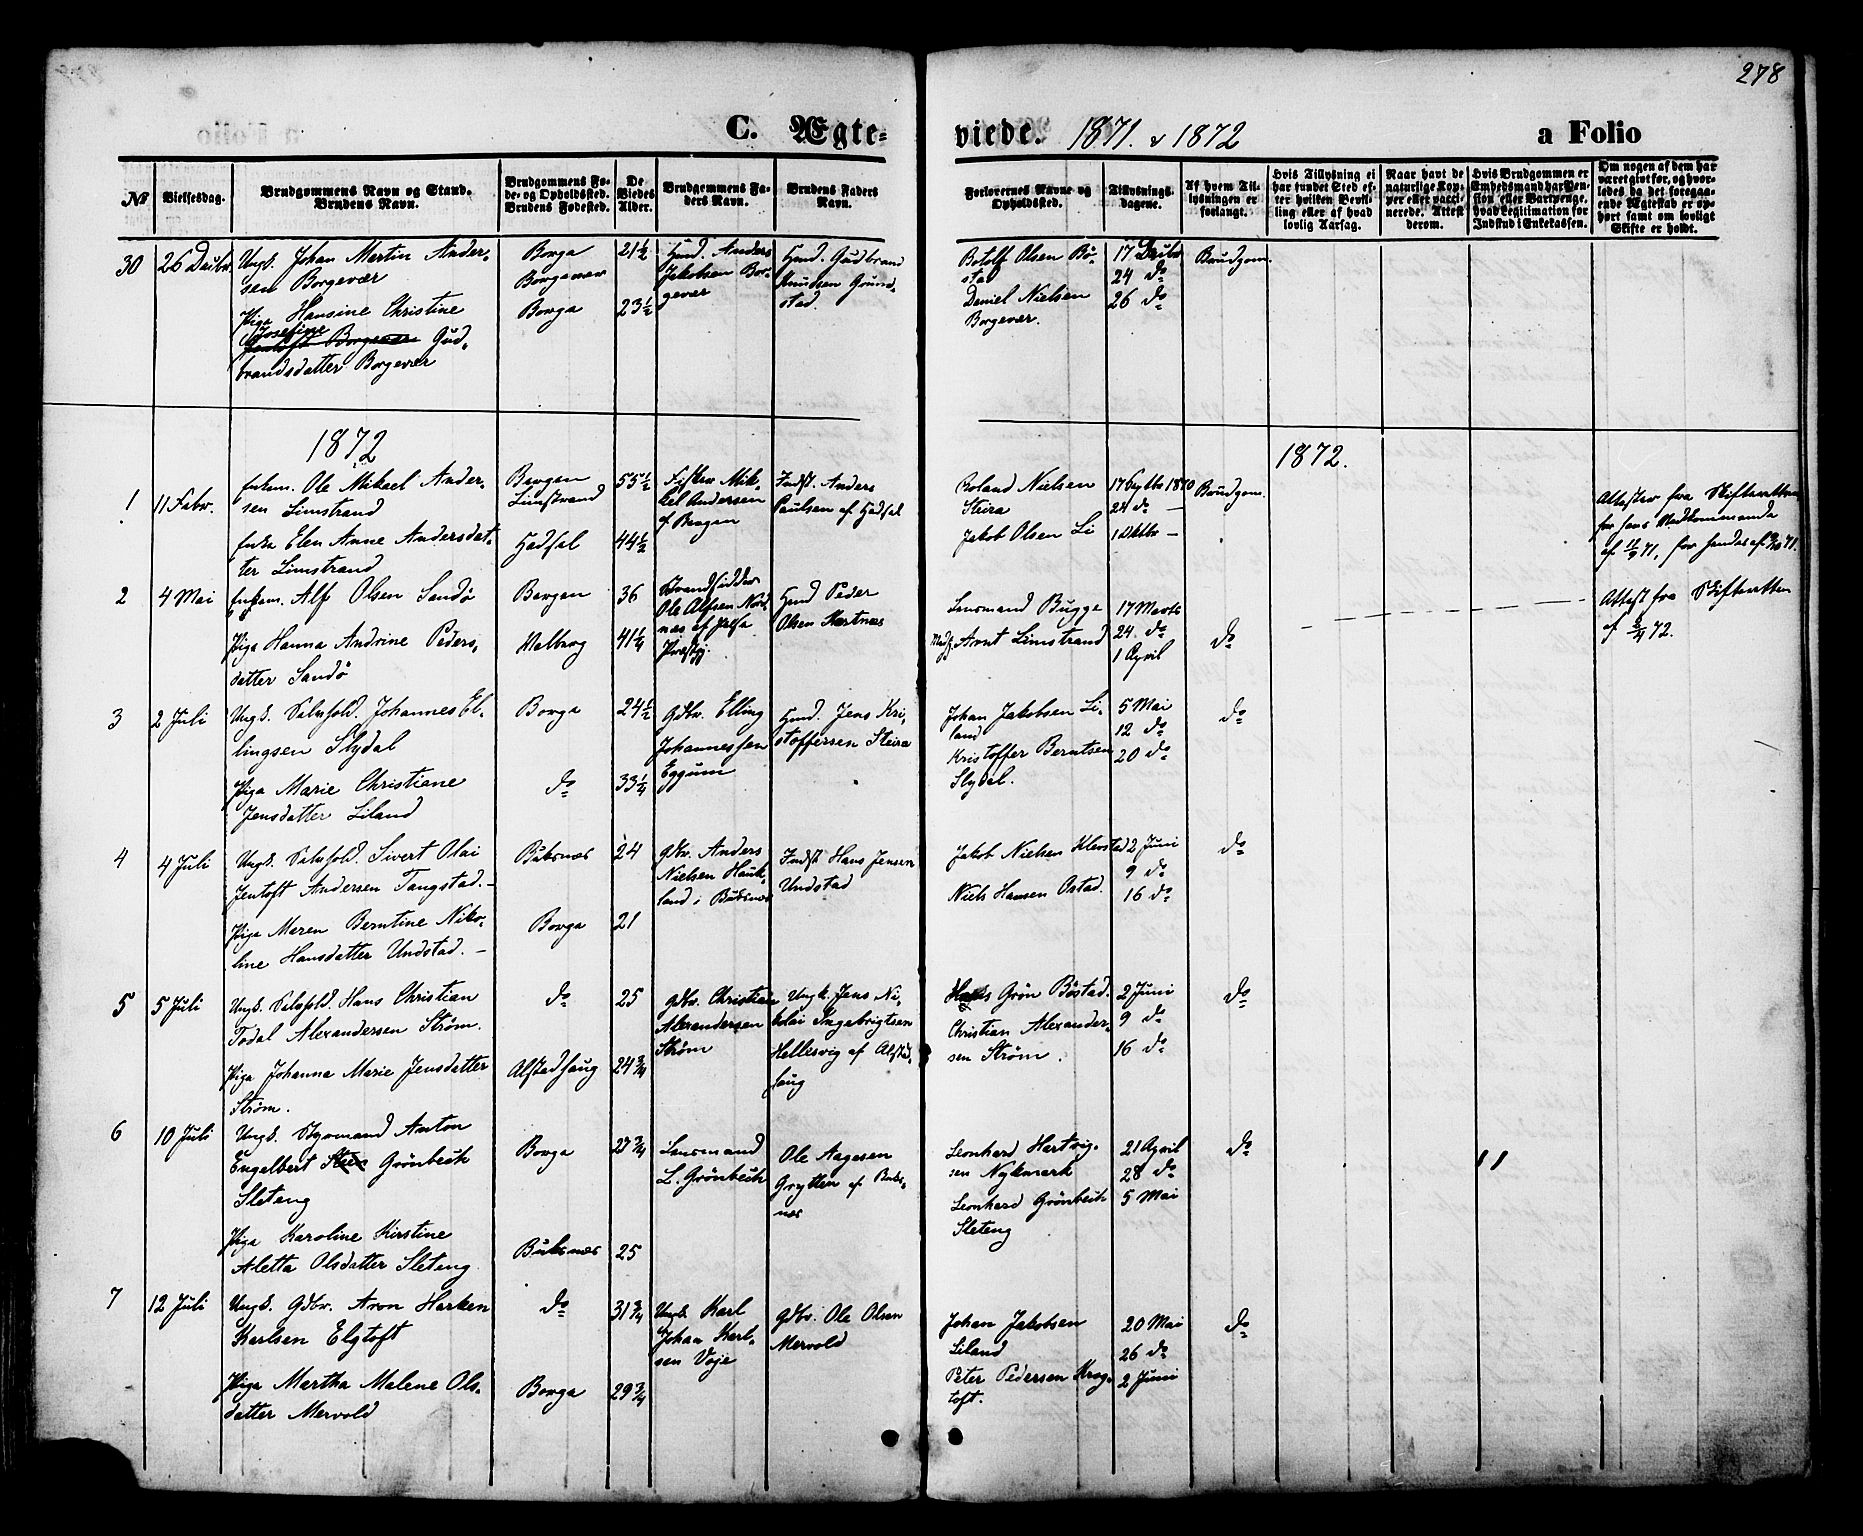 278
C. Ægte-
viede. 1871. & 1872
a Folio
No
Vielsesdag.
Brudgommens Navn og Stand.
Brudens Navn.
Brudgommens Fø-
de- og Opholdssted.
Brudens Fødested.
De
Viedes
Alder.
Brudgommens Fa-
ders Navn.
Brudens Faders
Navn.
Forlovernes Navne og
Opholdssted.
Tillysnings-
dagene.
Af hvem Til-
lysningen er
forlangt.
Hvis Tillysning ei
har fundet Sted ef-
ter hvilken Bevil-
ling eller af hvad
lovlig Aarsag.
Naar havt de
naturlige Kop-
per eller vacci-
nerede. Attest
derom.
Hvis Brudgommen er
Embedsmand har Pen-
sion eller Vartpenge,
hvad Legitimation for
Indskud i Enkekassen.
Om nogen af dem har
været gift før, og hvor-
ledes da det foregaa-
ende Ægteskab er op-
hørt samt om lovligt
Skifte er holdt.
30
26 Decbr
Ungk. Johan Martin Ander-
sen Borgevær
Pige Hansine Christine
Josefine
Jentoft Borgevær Gud-
brandsdatter Borgevær
Borge
Borgevær
Borge
21 1/2
23 1/2
Husm. Anders
Jakobsen Bor-
gevær
Husm. Gudbrand
Knudsen Grund-
stad.
Botolf Olsen Bø-
stad
Daniel Nielsen
Borgevær.
17 Decbr
24 do
26 do
Brudgom.
1872
1872.
1
11 Febr.
Enkem. Ole Mikael Ander-
sen Limstrand
Enke Elen Anne Andersdat-
ter Limstrand
Bergen
Limstrand
Hadsel
55 1/2
44 1/2
Fisker Mik-
kel Andersen
af Bergen
Indst. Anders
Paulsen af Hadsel
Roland Nielsen
Steira
Jakob Olsen Li
17 Septbr 1870
24 do —
1 Oktbr —
Brudgom.
Attester fra Skifteretten
for hans Vedkommende
af 11/9 71, for hendes af 9/10 71.
2
4 Mai
Enkem. Alf Olsen Sandø
Pige Hanna Andrine Peders-
datter Sandø
Bergen
Valberg
36
41 1/4
Strandsidder
Ole Alfsen Nord-
næs af Jelse
Præstgj.
Husm. Peder
Olsen Hertnæs
Lensmand Bugge
Arnt Limstrand
17 Marts
24. do
1 April
do
Attest fra Skifteretten
af 3/4 72.
3
2 Juli
Ungk. Selvfold. Johannes El-
lingsen Slydal
Pige Marie Christiane
Jensdatter Liland
Borge
do
24 1/2
33 1/4
Gdbr. Elling
Johannessen
Eggum
Husm. Jens Kri-
stoffersen Steira
Johan Jakobsen Li-
land
Kristoffer Berntsen
Slydal.
5 Mai
12 do
20 do
do
4
4 Juli
Ungk. Selvfold. Sivert Olai
Jentoft Andersen Tangstad. —
Pige Maren Berntine Niko-
line Hansdatter Undstad. —
Buksnæs
Borge
24
21
Gdbr. Anders
Nielsen Hauk-
land i Buksnæs
Indst. Hans Jensen
Undstad
Jakob Nielsen Klevstad
Niels Hansen Ostad.
2 Juni
9 do
16 do
do
5
5 Juli
Ungk. Selvfold. Hans Christian
Todal Alexandersen Strøm.
Pige Johanna Marie Jensdatter
Strøm.
do
Alstadhaug
25
24 3/4
Gdbr. Christian
Alexandersen
Strøm
Ungk. Jens Ni-
kolai Ingebrigtsen
Hellesvig af Alstad-
haug
Hans Grøn Bøstad.
Christian Alexander-
sen Strøm.
2 Juni
9 do
16 do
do
6
10 Juli
Ungk. Styrmand Anton
Engelbert Grønbech
Sleteng
Pige Karoline Kirstine
Aletta Olsdatter Sleteng
Borge
Buksnæs
27 3/4
25
Lensmand
L. Grønbech
Ole Aagesen
Grytten af Buks-
næs
Leonhard Hartvig-
sen Nykmark
Leonhard Grønbech
Sleteng
21 April
28 do
5 Mai
do
7
12 Juli
Ungk. Gdbr. Aron Harken
Karlsen Elgtoft
Pige Martha Malene Ols-
datter Mervold
do
Borge
31 3/4
29 3/4
Ungk Karl
Johan Karl-
sen Voje
Gdbr. Ole Olsen
Mervold
Johan Jakobsen
Liland
Peter Pedersen Krog-
toft.
20 Mai
26 do
2 Juni
do